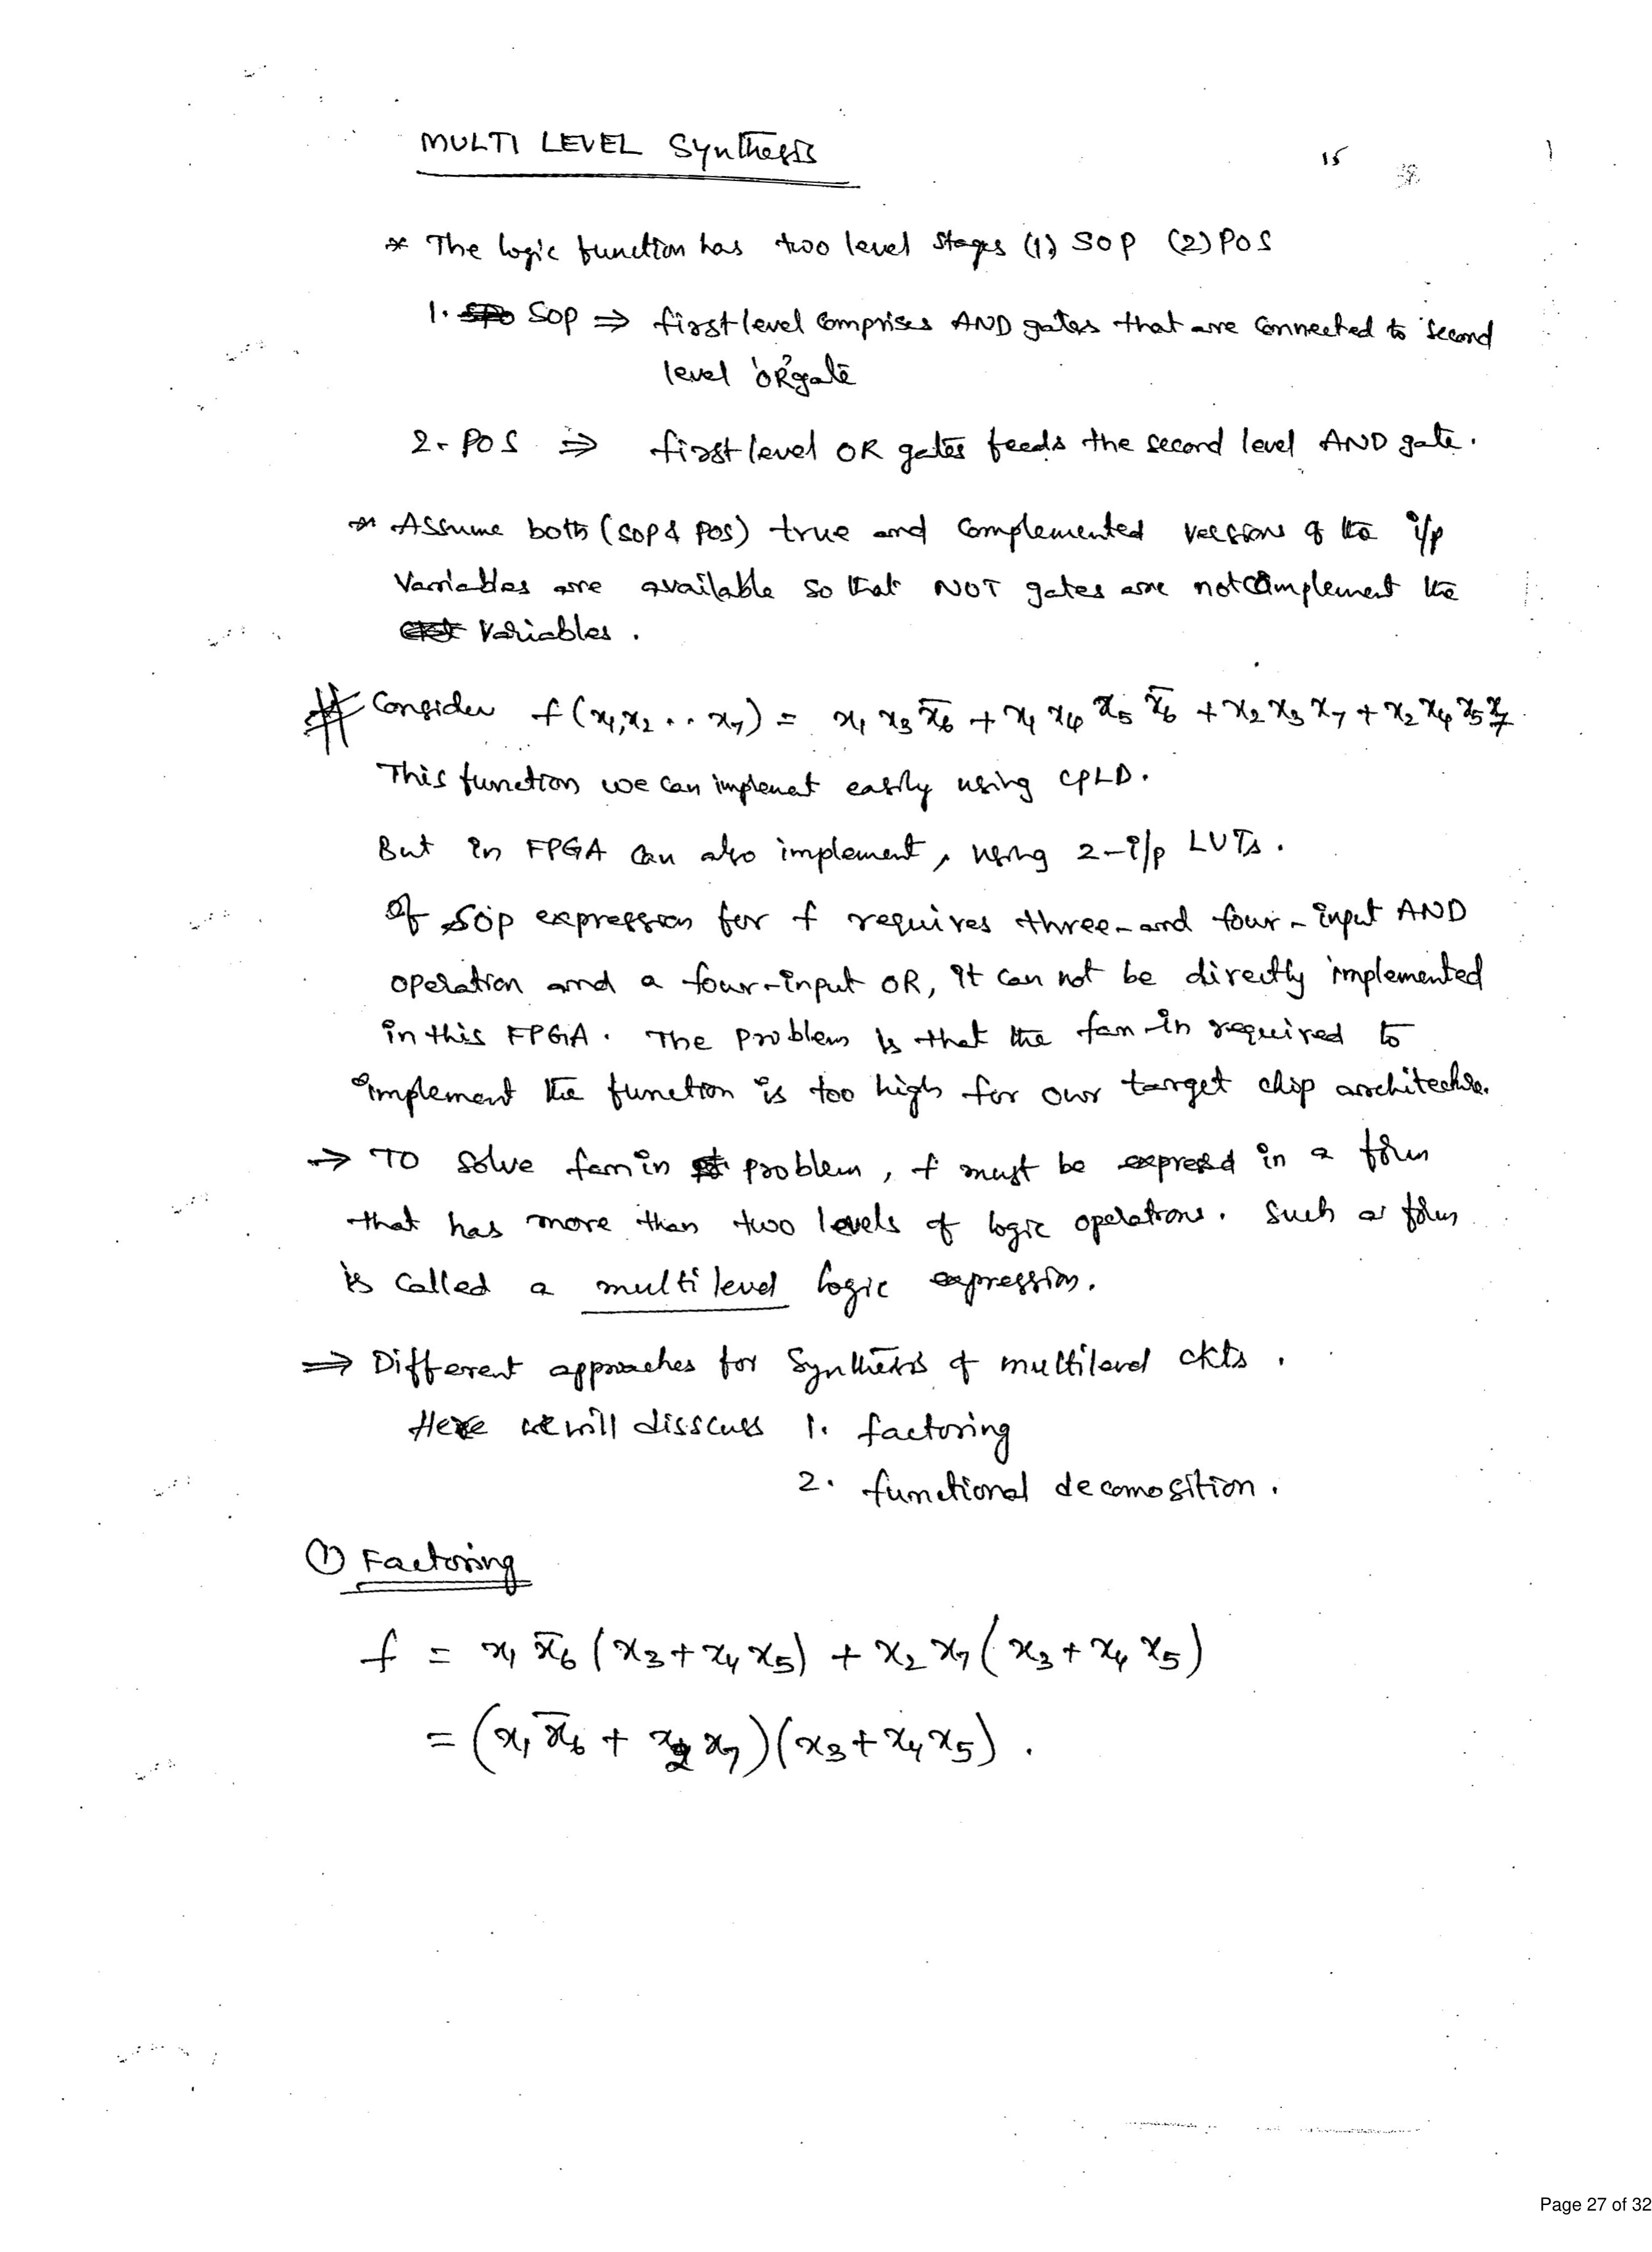 MULTI LEVEL Synthesis
15
* The logic function has two level stages (1) SOP (2) POS
1. SOP ⇒ first level comprises AND gates that are connected to second
level 'OR' gate
2. POS ⇒ first level OR gates feeds the second level AND gate.
* Assume both (SOP & POS) true and complemented versions of the i/p
Variables are available so that NOT gates are not implement the
Variables.
# Consider f(x₁,x₂ .. x₇) = x₁ x₃ x̅₆ + x₁ x₄ x₅ x̅₆ + x₂ x₃ x₇ + x₂ x₄ x₅ x₇
This function we can implemet easily using CPLD.
But in FPGA can also implement, using 2-i/p LUTs.
Of SOP expression for f requires three- and four-input AND
operation and a four-input OR, it can not be directly implemented
in this FPGA. The problem is that the fan-in required to
implement the function is too high for our target chip architecture.
→ TO solve fan in problem, f must be expressed in a form
that has more than two levels of logic operations. Such a form
is called a multi level logic expression.
⇒ Different approaches for Synthesis of multilevel ckts.
Here we will disscuss 1. factoring
2. functional decomosition.
① Factoring
f = x₁ x̅₆ (x₃ + x₄ x₅) + x₂ x₇ (x₃ + x₄ x₅)
= (x₁ x̅₆ + x₂ x₇)(x₃ + x₄ x₅).
Page 27 of 32